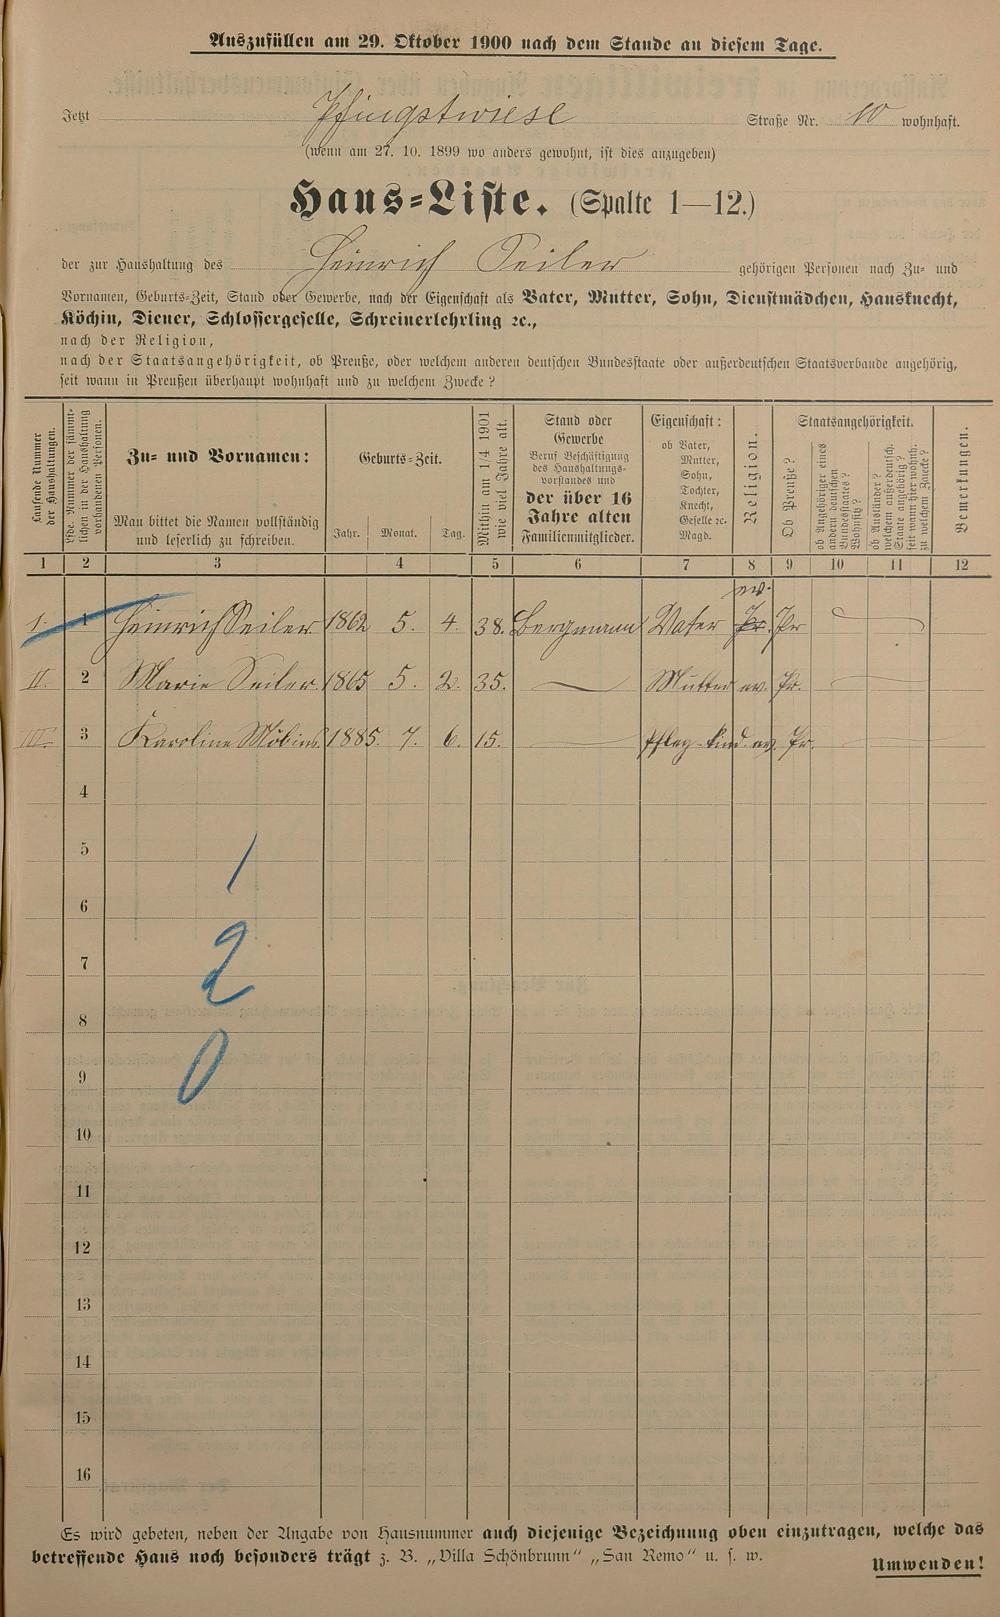 Auszufüllen am 29. Oktober 1900 nach dem Stande an diesem Tage.
Jetzt Pfingstwiese Straße Nr. 10 wohnhaft.
(wenn am 27. 10. 1899 wo anders gewohnt, ist dies anzugeben)
Haus-Liste. (Spalte 1—12.)
der zur Haushaltung des Heinrich Seiler gehörigen Personen nach Zu- und
Vornamen, Geburts-Zeit, Stand oder Gewerbe, nach der Eigenschaft als Vater, Mutter, Sohn, Dienstmädchen, Hausknecht,
Köchin, Diener, Schlossergeselle, Schreinerlehrling ꝛc.,
nach der Religion,
nach der Staatsangehörigkeit, ob Preuße, oder welchem anderen deutschen Bundesstaate oder außerdeutschen Staatsverbande angehörig,
seit wann in Preußen überhaupt wohnhaft und zu welchem Zwecke?
Laufende Nummer
der Haushaltungen.
Lfde. Nummer der sämmt-
lichen in der Haushaltung
vorhandenen Personen.
Zu- und Vornamen:
Man bittet die Namen vollständig
und leserlich zu schreiben.
Geburts-Zeit.
Jahr. Monat. Tag.
Mithin am 1/4 1901
wie viel Jahre alt.
Stand oder
Gewerbe
Beruf Beschäftigung
des Haushaltungs-
vorstandes und
der über 16
Jahre alten
Familienmitglieder.
Eigenschaft:
ob Vater,
Mutter,
Sohn,
Tochter,
Knecht,
Geselle ꝛc.
Magd.
Religion.
Staatsangehörigkeit.
Ob Preuße?
ob Angehöriger eines
andern deutschen
Bundesstaates?
Wohnsitz?
ob Ausländer?
welchem außerdeutsch.
Staate angehörig?
seit wann hier wohnh.
zu welchem Zwecke?
Bemerkungen.
1 2 3 4 5 6 7 8 9 10 11 12
ev.
I. 1 Heinrich Seiler 1862 5. 4. 38. Bergmann Vater Pr. Pr
II. 2 Marie Seiler. 1865 5. 2. 35. Mutter ev. Pr.
III. 3 Karoline Möbius. 1885. 7. 6. 15. Pfleg-kind. ev. Pr.
4
5
1
6
2
7
8
0
9
10
11
12
13
14
15
16
Es wird gebeten, neben der Angabe von Hausnummer auch diejenige Bezeichnung oben einzutragen, welche das
betreffende Haus noch besonders trägt z. B. „Villa Schönbrunn“ „San Remo“ u. s. w.
Umwenden!